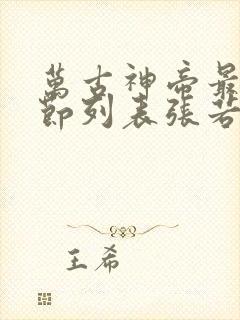 萬古神帝最
節列表張若
王希